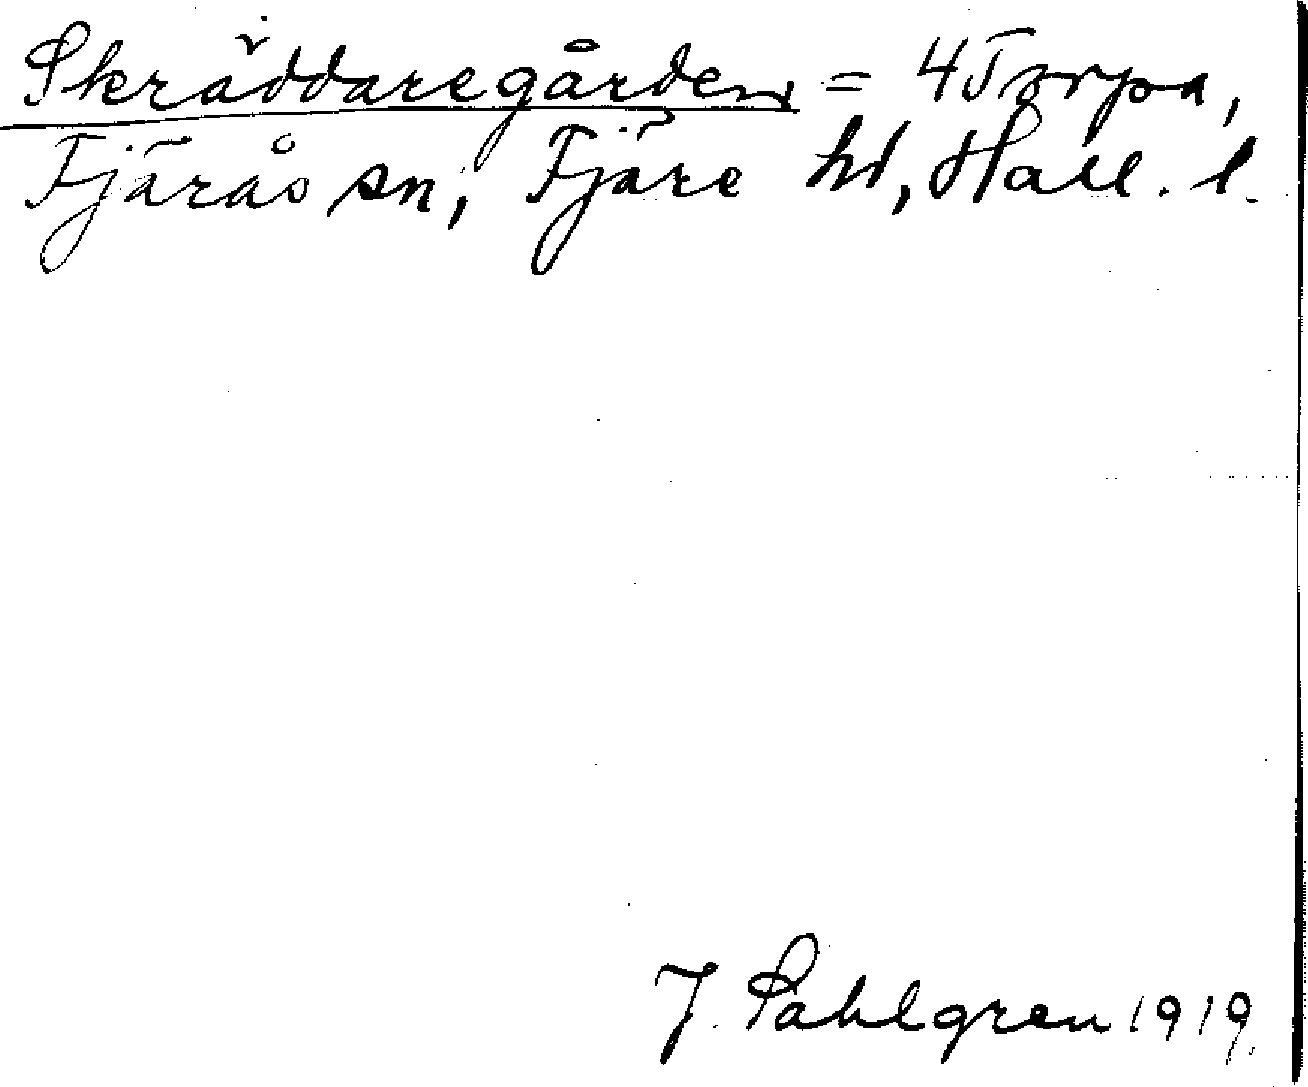 Skräddaregården = 4 Torpa,
Fjärås sn, Fjäre hd, Hall. l.
J. Sahlgren 1919.